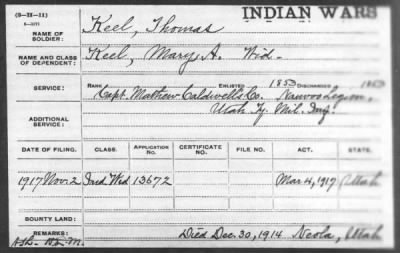 (3-H-11)
INDIAN WARS
NAME OF SOLDIER: Keel, Thomas
NAME AND CLASS OF DEPENDENT: Keel, Mary A. Wid.
SERVICE: RANK ENLISTED 1853 DISCHARGED 1853
Capt. Mathew Caldwell's Co. Nauvoo Legion,
Utah Ty. Mil. Inf.
ADDITIONAL SERVICE:
DATE OF FILING. CLASS. APPLICATION NO. CERTIFICATE NO. FILE NO. ACT. STATE.
1917 Nov. 2 Ind Wid 13672 Mar 4, 1917 Utah
BOUNTY LAND:
REMARKS: Died Dec. 30, 1914 Neola, Utah